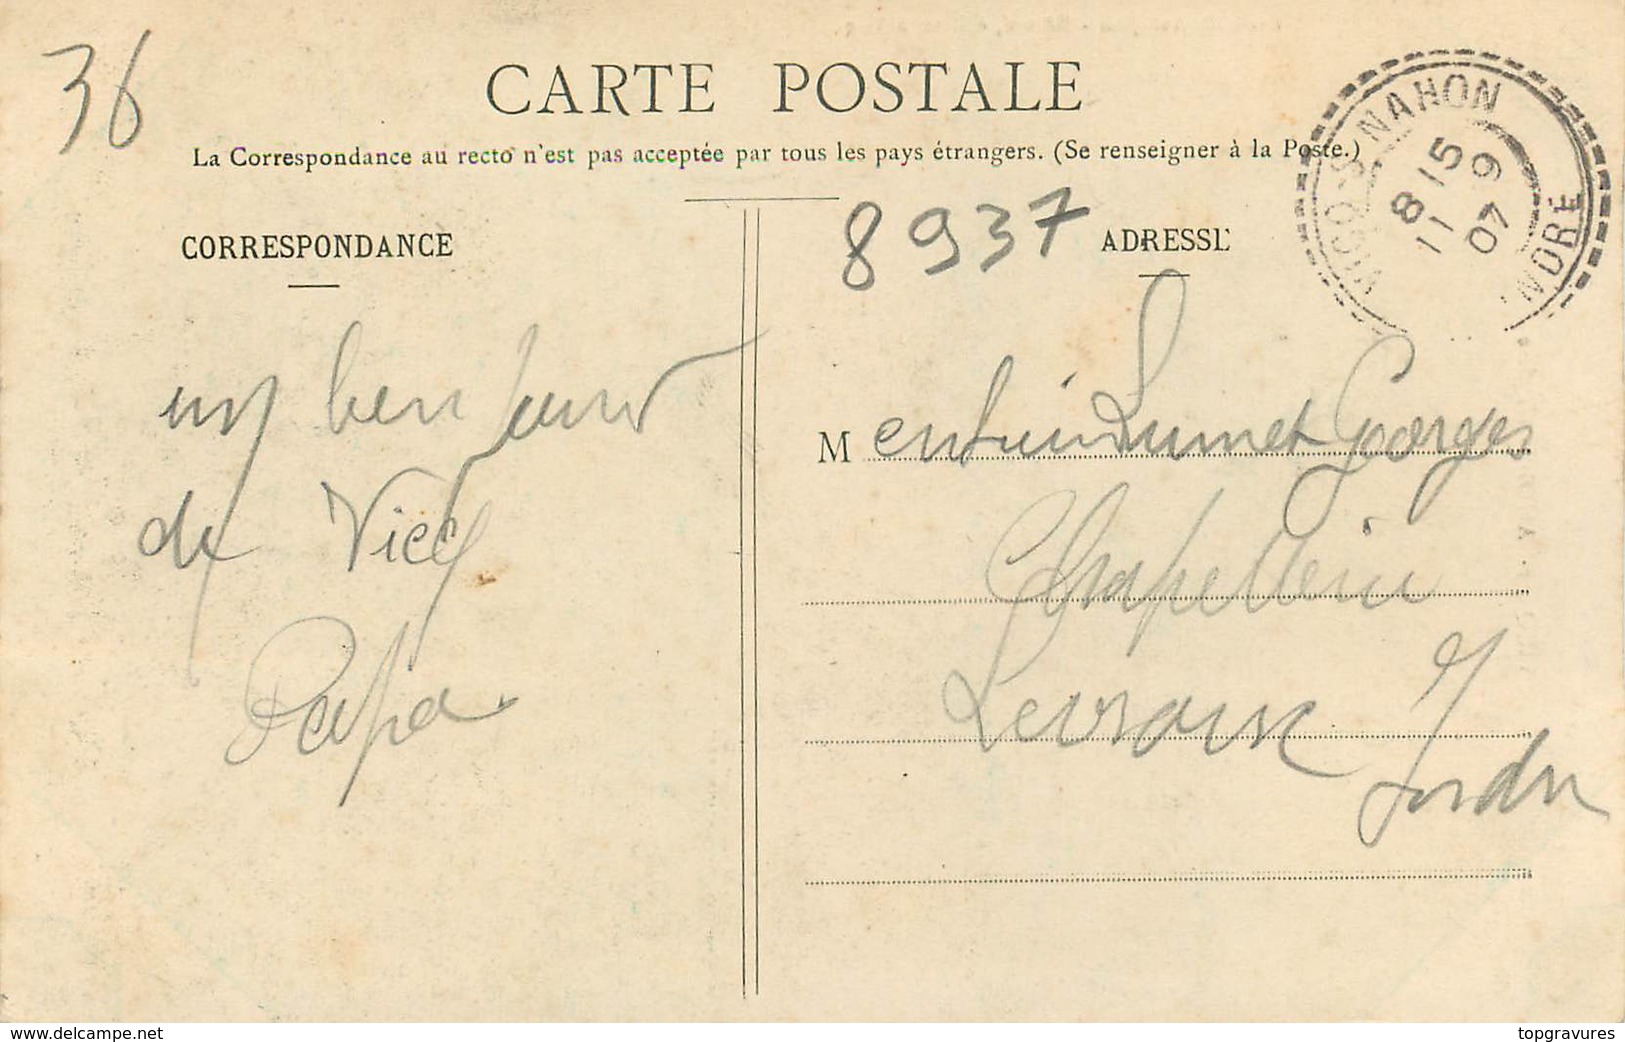 36
CARTE POSTALE
La Correspondance au recto n'est pas acceptée par tous les pays étrangers. (Se renseigner à la Poste.)
VICQ-S-NAHON
8 15
11 9
07
INDRE
8937
CORRESPONDANCE
ADRESSE
un bonjour
de Vicq
Papa
M Georges
Chapellerie
Levroux
Indre
www.delcampe.net
topgravures